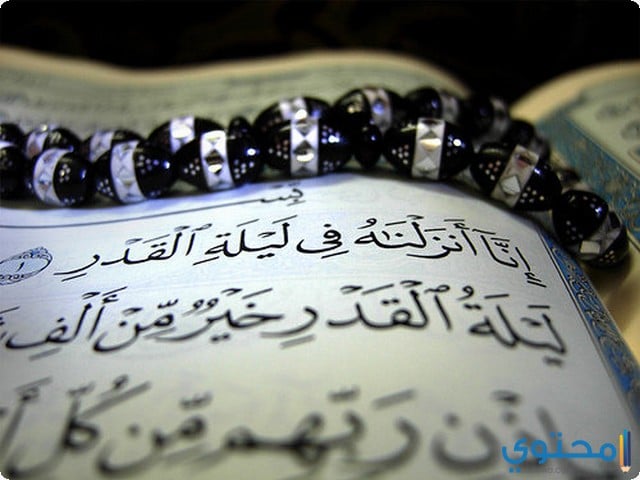 إِنَّا أَنزَلْنَـٰهُ فِى لَيْلَةِ ٱلْقَدْرِ ١
لَيْلَةُ ٱلْقَدْرِ خَيْرٌ مِّنْ أَلْفِ
رَبِّهِم مِّن كُلِّ
محتوي